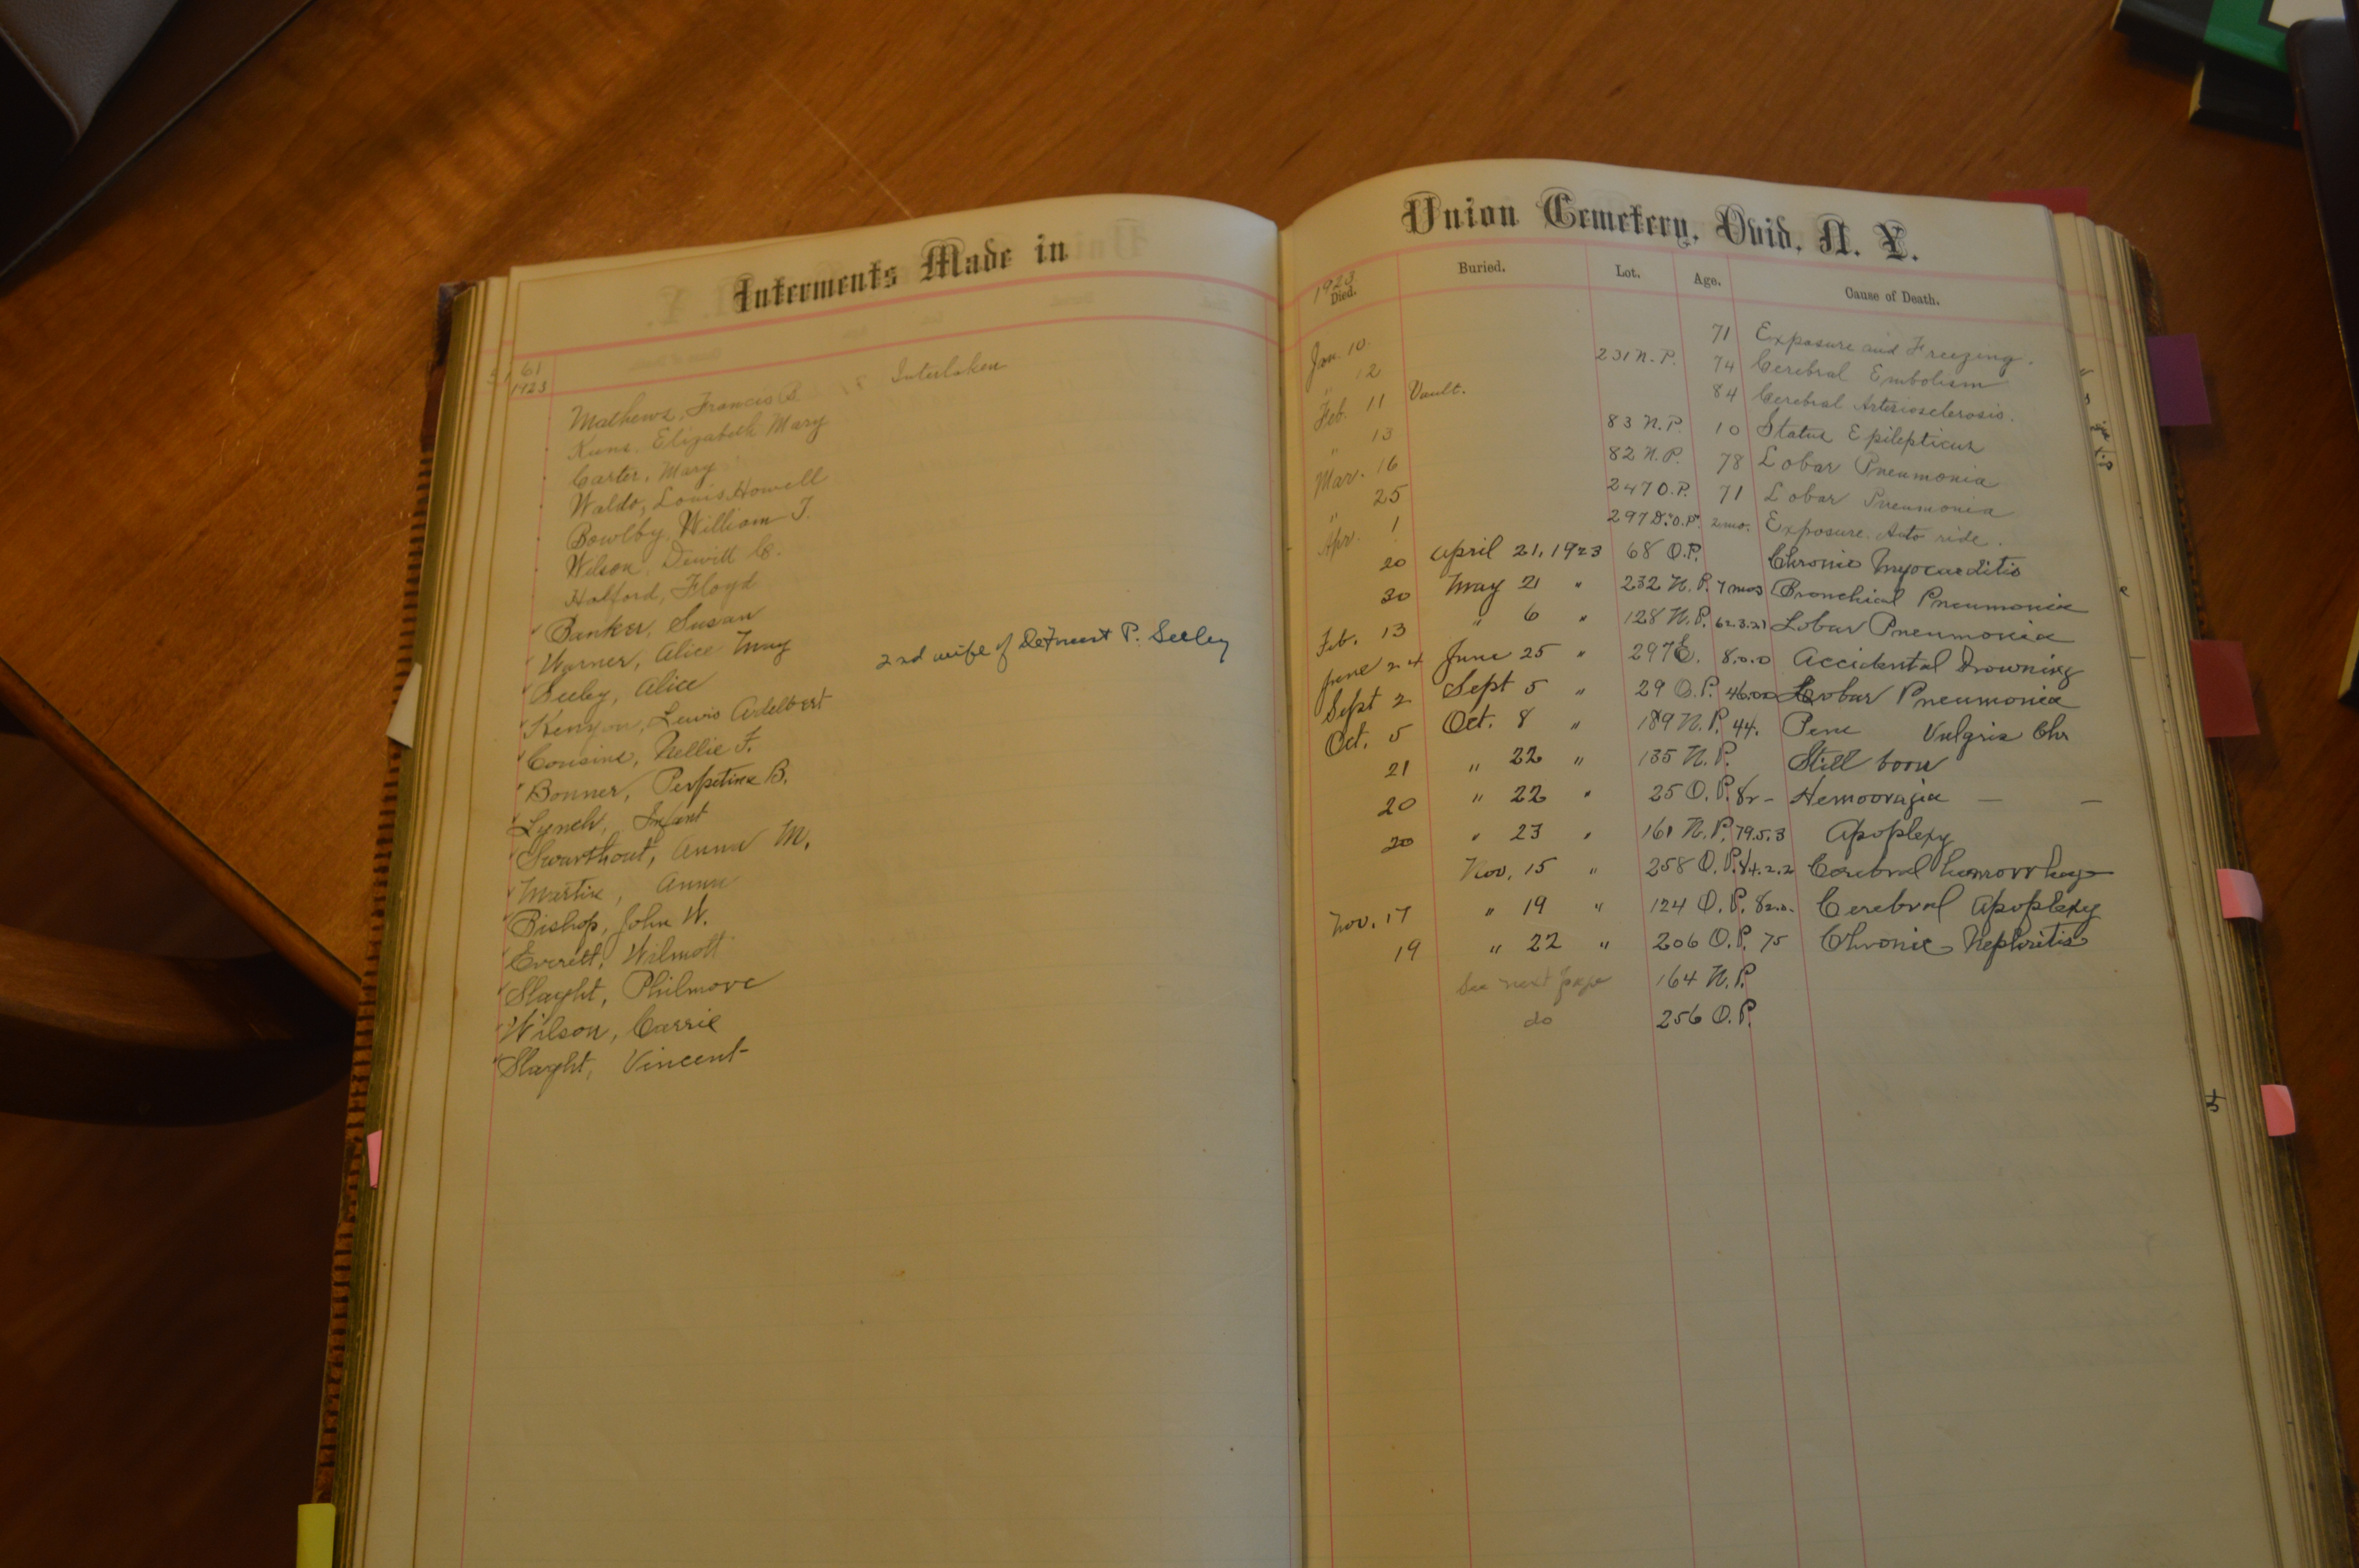 Interments Made in
61
1923
Mathews, Francis B. Interlaken
Kuns, Elizabeth Mary
Carter, Mary
Waldo, Louis Howell
Bowlby, William J.
Wilson, Dewitt C.
Holford, Floyd
Banker, Susan
Warner, Alice May
Seeley, Alice 2nd wife of DeForest P. Seeley
Kenyon, Lewis Adelbert
Cousins, Nellie F.
Bonner, Perpetine B.
Lynch, Infant
Swarthout, Anna M.
Martin, Anna
Bishop, John W.
Everett, Wilmott
Slaght, Philmore
Wilson, Carrie
Slaght, Vincent
Union Cemetery, Ovid, N. Y.
1923
Died. Buried. Lot. Age. Cause of Death.
Jan. 10 71 Exposure and Freezing.
" 12 231 N.P. 74 Cerebral Embolism
Feb. 11 Vault. 84 Cerebral Arteriosclerosis.
" 13 83 N.P. 10 Status Epilepticus
Mar. 16 82 N.P. 78 Lobar Pneumonia
" 25 247 O.P. 71 Lobar Pneumonia
Apr. 1 297 D. "O.P." 2 mo. Exposure. Auto ride.
20 April 21, 1923 68 O.P. Chronic Myocarditis
30 May 21 " 232 N.P. 7 mos Bronchial Pneumonia
Feb. 13 " 6 " 128 N.P. 62.3.21 Lobar Pneumonia
June 24 June 25 " 297 E. 8.0.0 Accidental Drowning
Sept 2 Sept 5 " 29 O.P. 46.00 Lobar Pneumonia
Oct. 5 Oct. 8 " 189 N.P. 44. Vulgris Chr
21 " 22 " 135 N.P. Still born
20 " 22 " 25 O.P. 82 - Hemooragia — —
20 " 23 " 161 N.P. 79.5.3 Apoplexy
Nov. 15 " 258 O.P. 84.2.2 Cerebral hemorrhage
Nov. 17 " 19 " 124 O.P. 82.0. Cerebral Apoplexy
19 " 22 " 206 O.P. 75 Chronic Nephritis
See next page 164 N.P.
do 256 O.P.